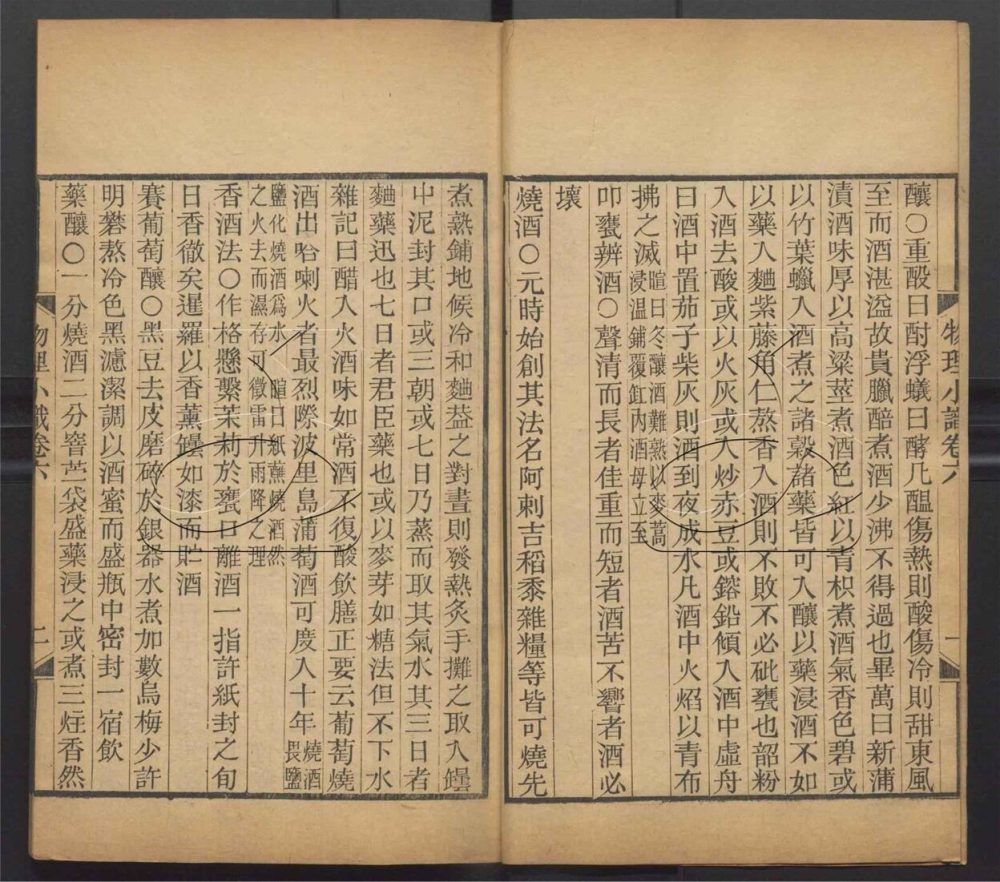 釀○重酘曰酎浮蟻曰醳凡醞傷熱則酸傷冷則甜東風
至而酒湛溢故貴臘醅煮酒少沸不得過也畢萬曰新蒲
漬酒味厚以高粱莖煮酒色紅以青枳煮酒氣香色碧或
以竹葉蠟入酒煮之諸穀諸藥皆可入釀以藥浸酒不如
以藥入麯紫藤角仁蒸香入酒則不敗不必砒甕也韶粉
入酒去酸或以火灰或入炒赤豆或鎔鉛傾入酒中虛舟
曰酒中置茄子柴灰則酒到夜成水凡酒中火焰以青布
拂之滅暄曰冬釀酒難熟以麥蒿
浸温鋪覆缸内酒母立至
叩甕辨酒○聲清而長者佳重而短者酒苦不響者酒必
壞
燒酒○元時始創其法名阿刺吉稻黍雜糧等皆可燒先
物理小識卷六
一
煮熟鋪地候冷和麯葢之對晝則發熱炙手攤之取入罎
中泥封其口或三朝或七日乃蒸而取其氣水其三日者
麯藥迅也七日者君臣藥也或以麥芽如糖法但不下水
雜記曰醋入火酒味如常酒不復酸飲膳正要云葡萄燒
酒出哈喇火者最烈際波里島蒲萄酒可度入十年燒酒
畏鹽
鹽化燒酒爲水 暄曰紙蘸燒酒然
之火去而濕存可徵雷升雨降之理
香酒法○作格懸繫茉莉於甕口離酒一指許紙封之旬
日香徹矣暹羅以香薰罎如漆而貯酒
賽葡萄釀○黑豆去皮磨碎於銀器水煮加數烏梅少許
明礬熬冷色黑濾潔調以酒蜜而盛瓶中密封一宿飲
藥釀○一分燒酒二分窨苎袋盛藥浸之或煮三炷香然
物理小識卷六
二